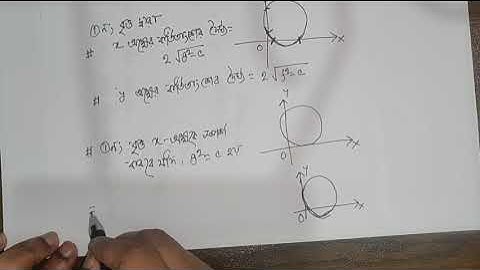 ① নং বৃত্ত দ্বারা
# x অক্ষের খন্ডিতাংশের দৈর্ঘ্য =
2√g²-c
# y অক্ষের খন্ডিতাংশের দৈর্ঘ্য = 2√f²-c
# ① নং বৃত্ত x-অক্ষকে স্পর্শ
করবে যদি, g² = c হয়
O X
Y
O X
Y
O X